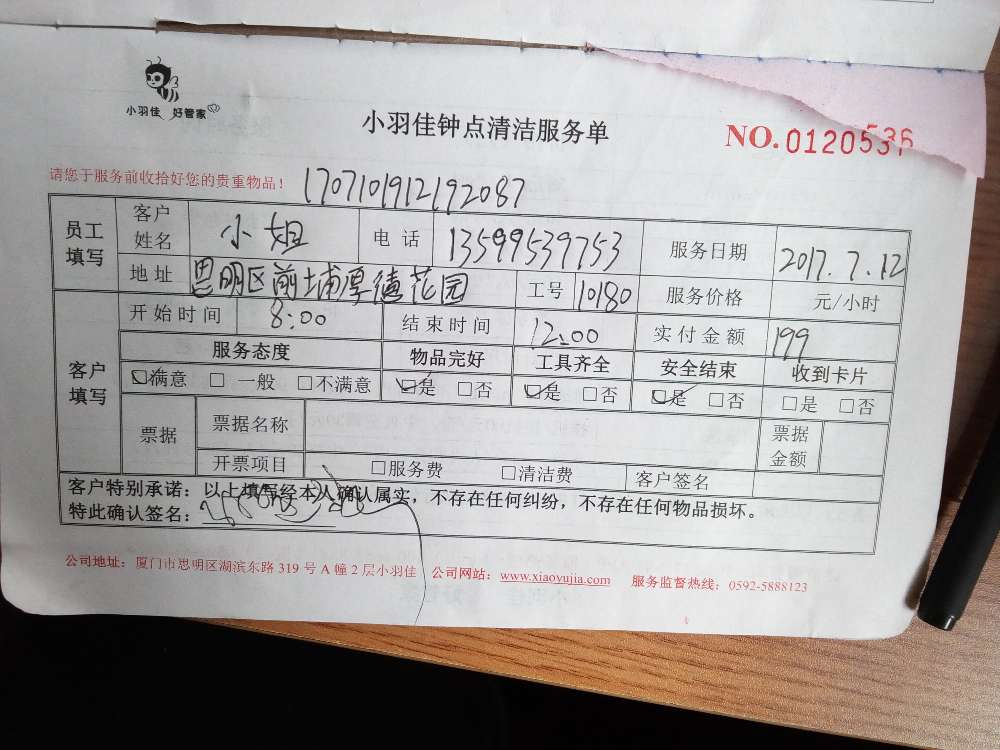 小羽佳 好管家
小羽佳钟点清洁服务单
NO.0120536
请您于服务前收拾好您的贵重物品！ 1707101912192087
员工填写 客户姓名 小姐 电话 13599539753 服务日期 2017.7.12
地址 思明区前埔厚德花园 工号 10180 服务价格 元/小时
客户填写 开始时间 8:00 结束时间 12:00 实付金额 199
服务态度 物品完好 工具齐全 安全结束 收到卡片
☑满意 □一般 □不满意 ☑是 □否 ☑是 □否 ☑是 □否 □是 □否
票据 票据名称 票据金额
开票项目 □服务费 □清洁费 客户签名
客户特别承诺：以上填写经本人确认属实，不存在任何纠纷，不存在任何物品损坏。
特此确认签名：
公司地址：厦门市思明区湖滨东路 319 号 A 幢 2 层小羽佳 公司网站：www.xiaoyujia.com 服务监督热线：0592-5888123